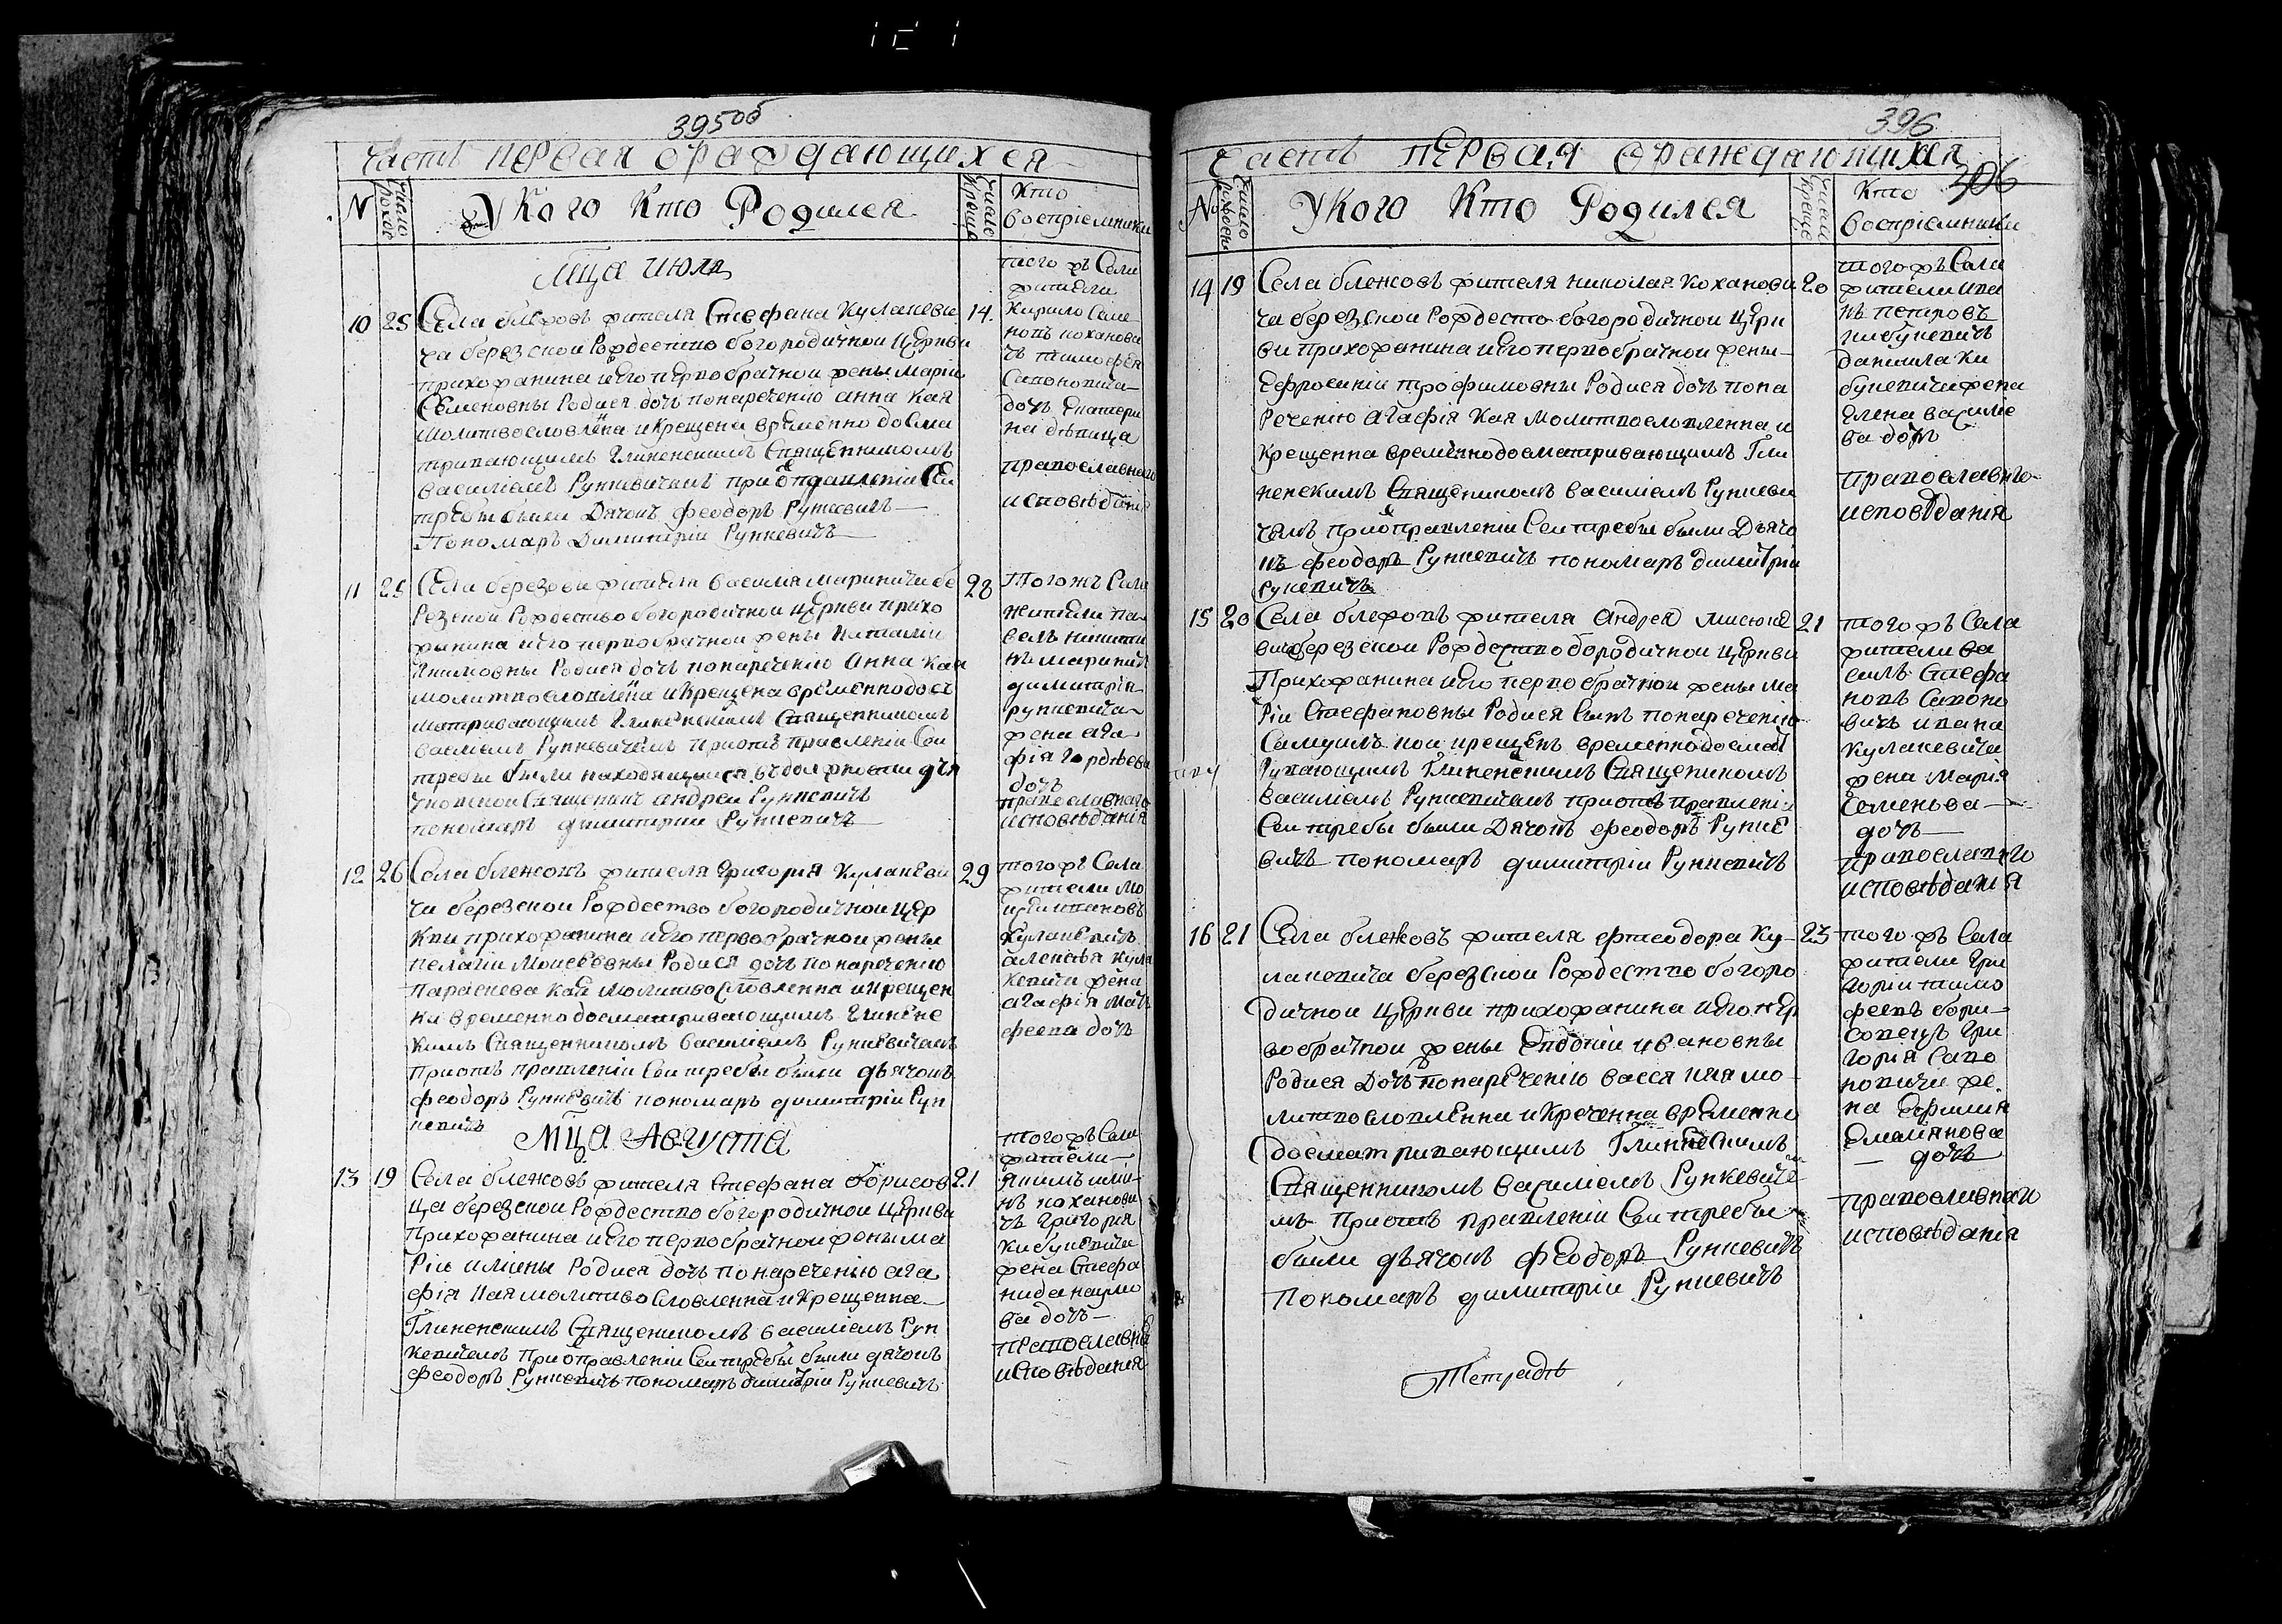 395об
часть первая ораждающихся
N
число рожде
У Кого Кто Родился
число креще
Кто
воспріемники
Мца июля
10 25 Села блежовъ жителя Стефана Кулакеви 14.
ча березской Рождество богородичной церкви
прихожанина и его первобрачной жены Маріи
Семеновны Родися дочь понаречению анна кая
молитвословлена и крещена временно досма
тривающимъ Глиненскимъ Священникомъ
василіемъ Рункевичемъ при отправленіи Сеи
требы были Дячокъ феодоръ Рункевичъ
Пономаръ Димитріи Рункевичъ
того жъ Села
жители
Кирило Семе
новъ коханови
чъ тимофея
Сапоновича
дочь Екатери
на девица
православнаго
исповѣданія
11 25 Села березови жителя василия Маринича бе 28
резской Рождество богородичной церкви прихо
жанина и его первобрачной жены Наталіи
Якимовны Родися дочь понаречению Анна кая
молитвословлена и крещена временно дос
матривающимъ Глиненскимъ Священникомъ
василіемъ Рункевичемъ при отъ правленіи Сеи
требы были находящиися въ должности дья
чковской Священикъ андреи Рункевичъ
пономаръ димитріи Рункевичъ
Тогожъ Села
жители па
велъ никити
нъ Мариничъ
димитрія
рункевича
жена ага
фія гордѣева
дочь
православнаго
исповѣданія
12 26 Села блежовъ жителя Григория Кулакеви 29
ча березской Рождество богородичной цер
кви прихожанина и его первобрачной жены
пелагіи Моисѣевны Родися дочь понаречению
Параскева кая Молитвословленна и крещен
на временно досматривающимъ Глинене
кимъ Священникомъ василіемъ Рункевичемъ
при отъ правленіи Сеи требы были дьячокъ
феодоръ Рункевичъ пономаръ димитріи Рун
кевичъ
того жъ Села
жители Мо
исеи ивановъ
Кулакевичъ
алексѣя Кула
кевича жена
агафія Мать
феева дочь
Мца Августа
13 19 Села блежовъ жителя Стефана борисов 21
ца березской Рождество богородичной церкви
Прихожанина и его первобрачной жены Ма
ріи илины Родися дочь понаречению ага
фія кая молитвословленна и крещенна
Глиненскимъ Священикомъ василіемъ Рун
кевичемъ при отправленіи Сеи требы были дячокъ
феодоръ Рункевичъ пономаръ димитріи Рункевичъ
того жъ Села
жители
якимъ или
нъ коханови
чъ Григория
кибукевича
жена Стефа
нида наумо
ва дочь
православна
исповѣдания
396
часть первая ораждающихся
306
№
число рожден
У Кого Кто Родился
число креще
Кто
воспріемники
14 19 Села блежовъ жителя николая Коханови 20
ча березской Рождесто богородичной церк
ви прихожанина и его первобрачной жены
Ефросиніи трофимовны Родися дочь пона
речению агафія кая молитвословленна и
крещенна временно досматривающимъ Гли
ненскимъ Священикомъ василіемъ Рункеви
чемъ при отправленіи Сеи требы были Дьячо
къ феодоръ Рункевичъ пономаръ димитріи
Рункевичъ
того жъ Села
жители ива
нъ петровъ
кибукевичъ
данила ки
букевича жена
Елена василье
ва дочь
православнго
исповѣданія
15 20 Села блежовъ жителя Андрея Мисюке 21
вича березской Рождество бородичной церкви
Прихожанина и его первобрачной жены Ма
ріи Стефановны Родися Сынъ понаречению
Самуилъ кои крещенъ временно досмат
ривающимъ Глиненскимъ Священикомъ
василіемъ Рункевичемъ при отъ правлені
Сеи требы были Дячокъ феодоръ Рунке
вичъ пономаръ димитріи Рункевичъ
того жъ Села
жители ва
силь Стефа
новъ Сапоно
вичъ ивана
кулакевича
жена Мария
Семенова
дочь
православнго
исповѣдания
16 21 Села блежовъ жителя феодора Ку- 23
лакевича березской Рождество богоро
дичной церкви прихожанина и его пер
вобрачной жены Евдокіи ивановны
Родися Дочь понаречению васса кая мо
литвословленна и креченна временно
досматривающимъ Глиненскимъ
Священникомъ василіемъ Рункевиче
мъ при отъ правленіи Сеи требы
были дьячокъ феодоръ Рункевичъ
Пономаръ димитріи Рункевичъ
того жъ Села
жители Гри
гории тимо
феевъ бори-
совецъ Гри
гория Сапо
новича же
на Ефимия
Емелянова
дочь
православнаго
исповѣдания
Тетрадь